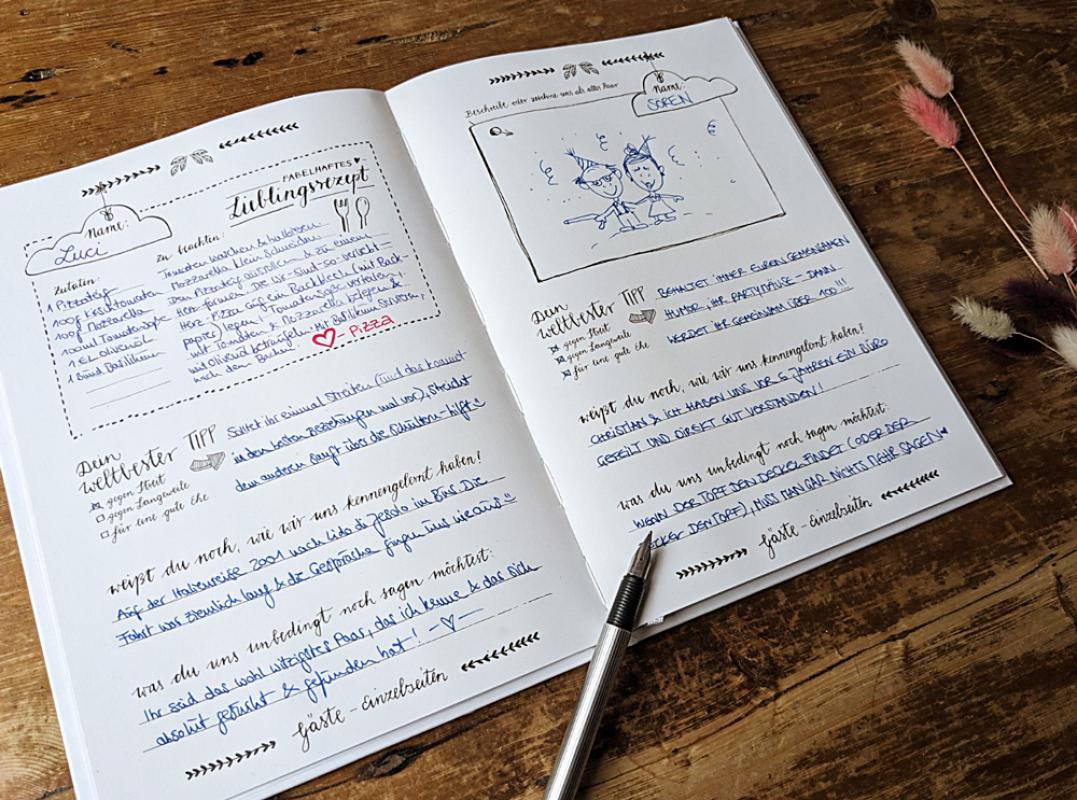 FABELHAFTES
Lieblingsrezept
name:
Luci
Zutaten:
1 Pizzateig
100g Kirschtomaten
100g Mozzarella
100ml Tomatensoße
1 EL Olivenöl
1 Bund Basilikum
zu beachten:
Tomaten waschen & halbieren.
Mozzarella klein schneiden.
Den Pizzateig ausrollen & zu einem
Herz formen. Die Wir-sind-so-verliebt-
Herz-Pizza auf ein Backblech (mit Back-
papier) legen, Tomatensoße verteilen,
mit Tomaten & Mozzarella belegen &
mit Olivenöl beträufeln. Mit Basilikum
nach dem Backen
♡-Pizza
Dein
weltbester TIPP
gegen Streit
gegen Langeweile
für eine gute Ehe
Solltet ihr einmal streiten (und das kommt
in den besten Beziehungen mal vor), streicht
dem anderen sanft über die Schultern - hilft
weißt du noch, wie wir uns kennengelernt haben?
Auf der Italienreise 2001 nach Lido di Jesolo im Bus. Die
Fahrt war ziemlich lang & die Gespräche fingen uns
was du uns unbedingt noch sagen möchtest:
Ihr seid das wohl witzigste Paar, das ich kenne & das sich
absolut gesucht & gefunden hat! -♡-
Gäste-Einzelseiten
Beschreibe oder zeichne uns als altes Paar
name:
SÖREN
Dein
weltbester TIPP
gegen Streit
gegen Langeweile
für eine gute Ehe
BEHALTET IMMER EUREN GEMEINSAMEN
HUMOR, IHR PARTYMÄUSE - DANN
WERDET IHR GEMEINSAM ÜBER 100!!!
weißt du noch, wie wir uns kennengelernt haben?
CHRISTIAN & ICH HABEN UNS VOR 5 JAHREN EIN BÜRO
GETEILT UND DIREKT GUT VERSTANDEN!
was du uns unbedingt noch sagen möchtest:
WENN DER TOPF DEN DECKEL FINDET (ODER DER
DECKEL DEN TOPF), MUSS MAN GAR NICHTS MEHR SAGEN
Gäste-Einzelseiten